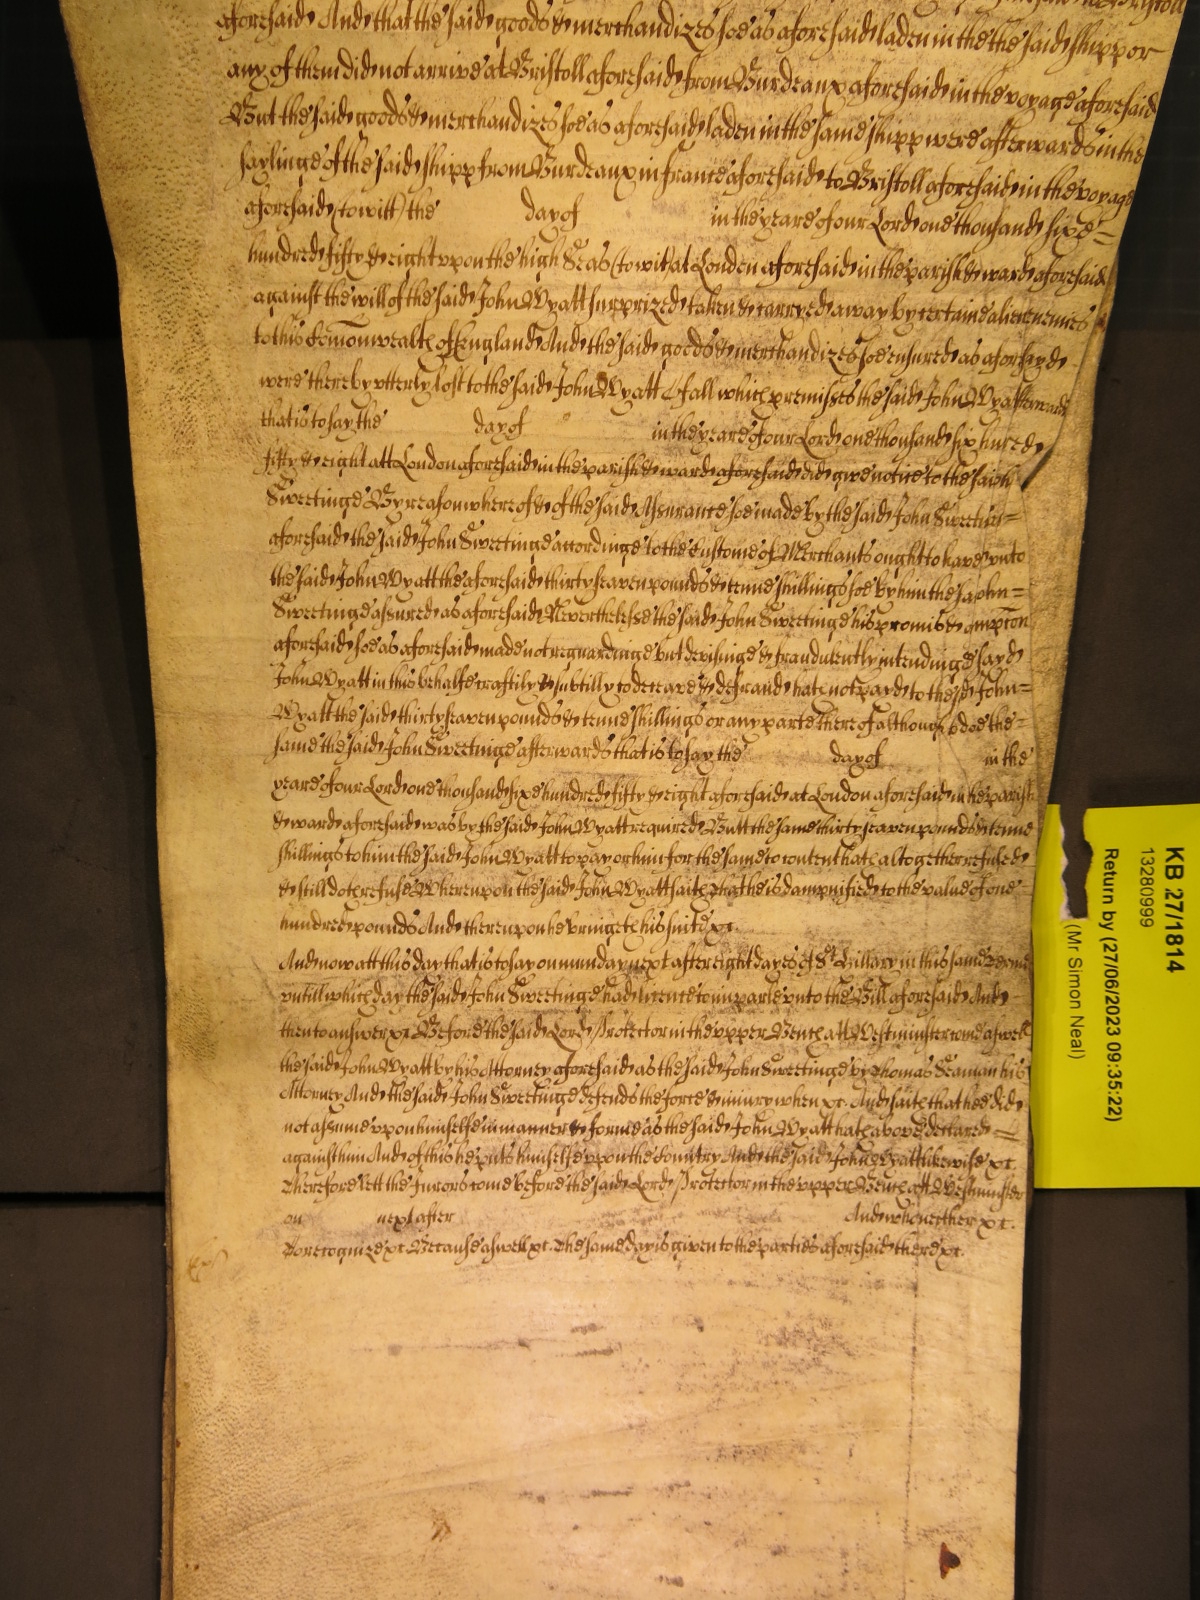 aforesaide And that the saide goods & merchandizes soe as aforesaide laden in the the saide shipp or
any of them did not arrive at Bristoll aforesaide from Burdeaux aforesaide in the voyage aforesaid
But the saide goods & merchandizes soe as aforesaide laden in the same shipp were afterwards in the
saylinge of the saide shipp from Burdeaux in france aforesaide to Bristoll aforesaide in the voyage
aforesaide (to witt) the day of in the yeare of our Lord one thousand sixe=
hundred fifty & eight upon the high Seas (to wit) at London aforesaide in the parish & ward aforesaid
against the will of the saide John Wyatt surprized taken & carryed away by certaine alien enemies
to this Comonwealth of England And the saide goods & merchandizes soe ensured as aforsayde
were thereby utterly lost to the saide John Wyatt Of all which premisses the saide John Wyatt
that is to say the day of in the yeare of our Lord one thousand six hundred
fifty & eight att London aforesaide in the parish & ward aforesaide did give notice to the said
Sweetinge By reason whereof & of the saide Assurance soe made by the saide John Sweetin=
aforesaide the saide John Sweetinge accordinge to the Custome of Merchants ought to have unto
the saide John Wyatt the aforesaide thirty seaven pounds & tenne shillings soe by him the sd John=
Sweetinge assured as aforesaide Neverthelesse the saide John Sweetinge his promise &
aforesaide soe as aforesaide made not reguardinge but devisinge & fraudulently intendinge sayde
John Wyatt in this behalfe craftily & subtilly to deceave & defraud hath not payde to the sd John=
Wyatt the saide thirty seaven pounds & tenne shillings or any parte thereof although to doe the=
same the saide John Sweetinge afterwards that is to say the day of in the
yeare of our Lord one thousand sixe hundred fifty & eight aforesaide at London aforesaid in the parish
& ward aforesaide was by the saide John Wyatt required Butt the same thirty seaven pounds & tenne
shillings to him the saide John Wyatt to pay or him for the same to content hath altogether refused
& still doth refuse Whereupon the saide John Wyatt saith that he is dampnified to the value of one=
hundred pounds And thereupon he bringeth his suite &c.
And now att this day that is to say on munday next after eight dayes of St. Hillary in this same Terme
untill which day the saide John Sweetinge had licence to imparle unto the Bill aforesaide And
then to answer &c. Before the saide Lord Protector in the upper Bench att Westminster come aswell
the saide John Wyatt by his Attorney aforesaide as the saide John Sweetinge by Thomas Seaman his
Attorney And the saide John Sweetinge defends the force & iniury when &c. And saith that hee did
not assume upon himselfe in manner & forme as the saide John Wyatt hath above declared=
against him And of this he putts himselfe upon the Country And the saide John Wyatt likewise &c.
Therefore lett the Jurors come before the saide Lord Protector in the upper Bench att Westminster
on next after And who neither &c.
To recognize &c. Because aswell &c. The same day is given to the parties aforesaide there &c.
KB 27/1814
13280999
Return by (27/06/2023 09:35:22)
(Mr Simon Neal)